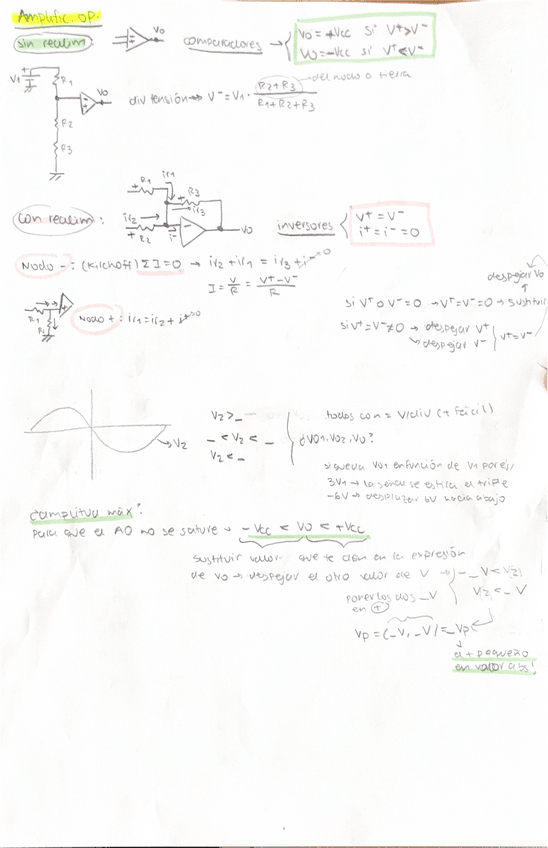 Amplific. op.
sin realim: Vo comparadores → Vo = +Vcc si V⁺>V⁻
Vo = -Vcc si V⁺<V⁻
V1 R1 Vo
div tensión → V⁻ = V1 · (R2+R3)/(R1+R2+R3) → del nodo a tierra
R2
R3
con realim: R1 ir1 R3 ir3 ir2 R2 i⁻ Vo inversores V⁺ = V⁻
i⁺ = i⁻ = 0
Nodo - : (Kirchoff) ΣI=0 → ir2 + ir1 = ir3 + i⁻ 0
I = V/R = (V⁺-V⁻)/R
R1 R2 Nodo + : ir1 = ir2 + i⁺ 0
despejar Vo
si V⁺ o V⁻ = 0 → V⁺=V⁻=0 → sustituir
si V⁺=V⁻≠0 → despejar V⁺
→ despejar V⁻ V⁺=V⁻
V2
V2 > _
_ < V2 < _
V2 < _
todos con = V/div (+ fácil)
¿Vo1, Vo2, Vo?
si queda Vo1 en función de V1 por ej:
3V1 → la señal se estira el triple
-6V → desplazar 6V hacia abajo
¿amplitud máx?:
Para que el AO no se sature → -Vcc < Vo < +Vcc
sustituir valor que te dan en la expresión
de Vo → despejar el otro valor de V → -_V < V2
V2 < _V
ponerlos dos _V
en +
Vp = (-V, -V) = _Vp
el + pequeño
en valor abs!